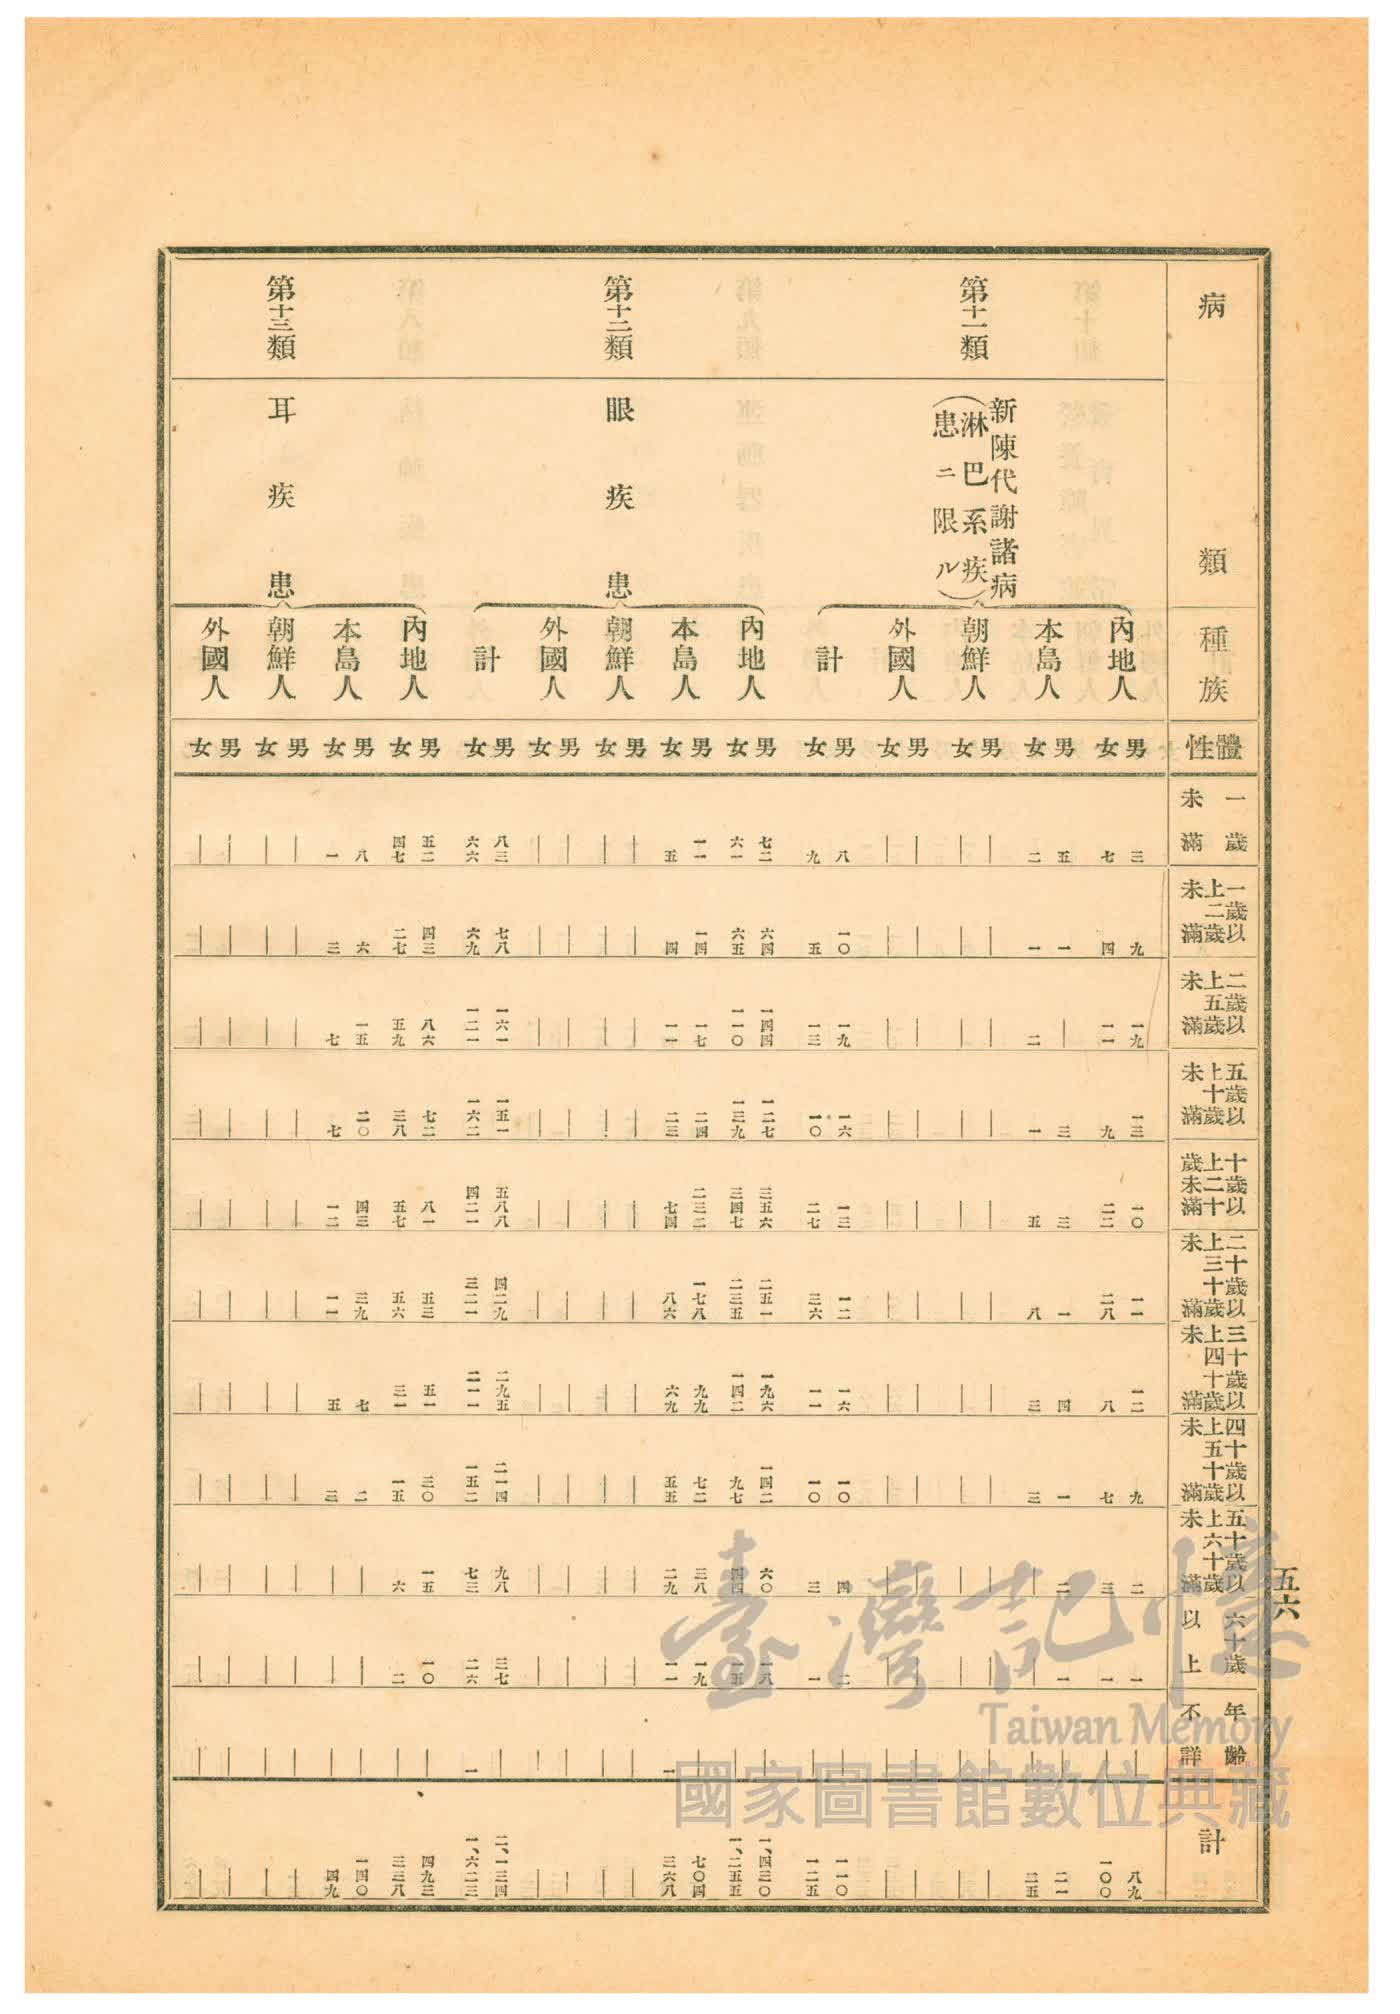 五六
病類 種族 體性 一歲未滿 一歲以上二歲未滿 二歲以上五歲未滿 五歲以上十歲未滿 十歲以上二十歲未滿 二十歲以上三十歲未滿 三十歲以上四十歲未滿 四十歲以上五十歲未滿 五十歲以上六十歲未滿 六十歲以上 年齡不詳 計
第十一類 新陳代謝諸病(淋巴系疾患ニ限ル)
內地人 男 三 九 一九 一三 一〇 一一 一二 九 二 一 ｜ 八九
女 七 四 一一 九 二二 二八 八 七 三 一 ｜ 一〇〇
本島人 男 五 一 ｜ 三 三 一 四 一 二 一 ｜ 二一
女 二 一 二 一 五 八 三 三 ｜ ｜ ｜ 二五
朝鮮人 男 ｜ ｜ ｜ ｜ ｜ ｜ ｜ ｜ ｜ ｜ ｜ ｜
女 ｜ ｜ ｜ ｜ ｜ ｜ ｜ ｜ ｜ ｜ ｜ ｜
外國人 男 ｜ ｜ ｜ ｜ ｜ ｜ ｜ ｜ ｜ ｜ ｜ ｜
女 ｜ ｜ ｜ ｜ ｜ ｜ ｜ ｜ ｜ ｜ ｜ ｜
計 男 八 一〇 一九 一六 一三 一二 一六 一〇 四 二 ｜ 一一〇
女 九 五 一三 一〇 二七 三六 一一 一〇 三 一 ｜ 一二五
第十二類 眼疾患
內地人 男 七二 六四 一四四 一二七 三五六 二五一 一九六 一四二 六〇 一八 ｜ 一、四三〇
女 六一 六五 一一〇 一三九 三四七 二三五 一四二 九七 四四 一五 ｜ 一、二五五
本島人 男 一一 一四 一七 二四 二三二 一七八 九九 七二 三八 一九 ｜ 七〇四
女 五 四 一一 二三 七四 八六 六九 五五 二九 一一 一 三六八
朝鮮人 男 ｜ ｜ ｜ ｜ ｜ ｜ ｜ ｜ ｜ ｜ ｜ ｜
女 ｜ ｜ ｜ ｜ ｜ ｜ ｜ ｜ ｜ ｜ ｜ ｜
外國人 男 ｜ ｜ ｜ ｜ ｜ ｜ ｜ ｜ ｜ ｜ ｜ ｜
女 ｜ ｜ ｜ ｜ ｜ ｜ ｜ ｜ ｜ ｜ ｜ ｜
計 男 八三 七八 一六一 一五一 五八八 四二九 二九五 二一四 九八 三七 ｜ 二、一三四
女 六六 六九 一二一 一六二 四二一 三二一 二一一 一五二 七三 二六 一 一、六二三
第十三類 耳疾患
內地人 男 五二 四三 八六 七二 八一 五三 五一 三〇 一五 一〇 ｜ 四九三
女 四七 二七 五九 三八 五七 五六 三一 一五 六 二 ｜ 三三八
本島人 男 八 六 一五 二〇 四三 三九 七 二 ｜ ｜ ｜ 一四〇
女 一 三 七 七 一二 一一 五 三 ｜ ｜ ｜ 四九
朝鮮人 男 ｜ ｜ ｜ ｜ ｜ ｜ ｜ ｜ ｜ ｜ ｜ ｜
女 ｜ ｜ ｜ ｜ ｜ ｜ ｜ ｜ ｜ ｜ ｜ ｜
外國人 男 ｜ ｜ ｜ ｜ ｜ ｜ ｜ ｜ ｜ ｜ ｜ ｜
女 ｜ ｜ ｜ ｜ ｜ ｜ ｜ ｜ ｜ ｜ ｜ ｜
臺灣記憶
Taiwan Memory
國家圖書館數位典藏